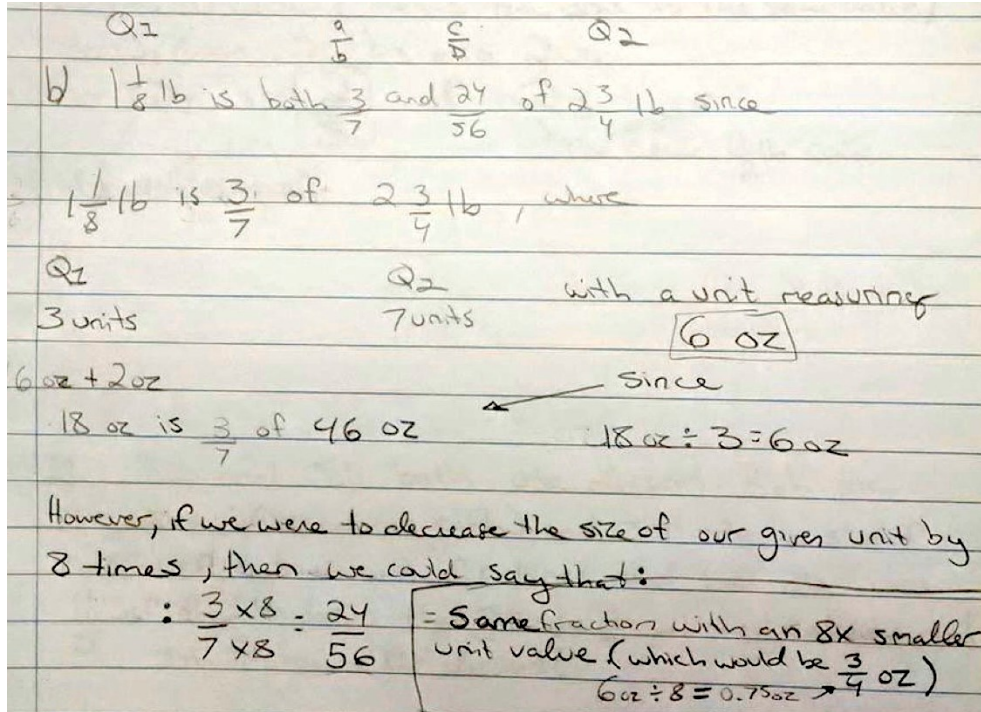 Q1 a/b c/D Q2
b) 1 1/8 lb is both 3/7 and 24/56 of 2 3/4 lb since
1 1/8 lb is 3/7 of 2 3/4 lb, where
Q1 Q2 with a unit measuring
3 units 7 units 6 oz
6 oz + 2 oz since
18 oz is 3/7 of 46 oz 18 oz ÷ 3 = 6 oz
However, if we were to decrease the size of our given unit by
8 times, then we could say that:
: 3 x8 / 7 x8 = 24/56 = Same fraction with an 8x smaller
unit value (which would be 3/4 oz)
6 oz ÷ 8 = 0.75 oz